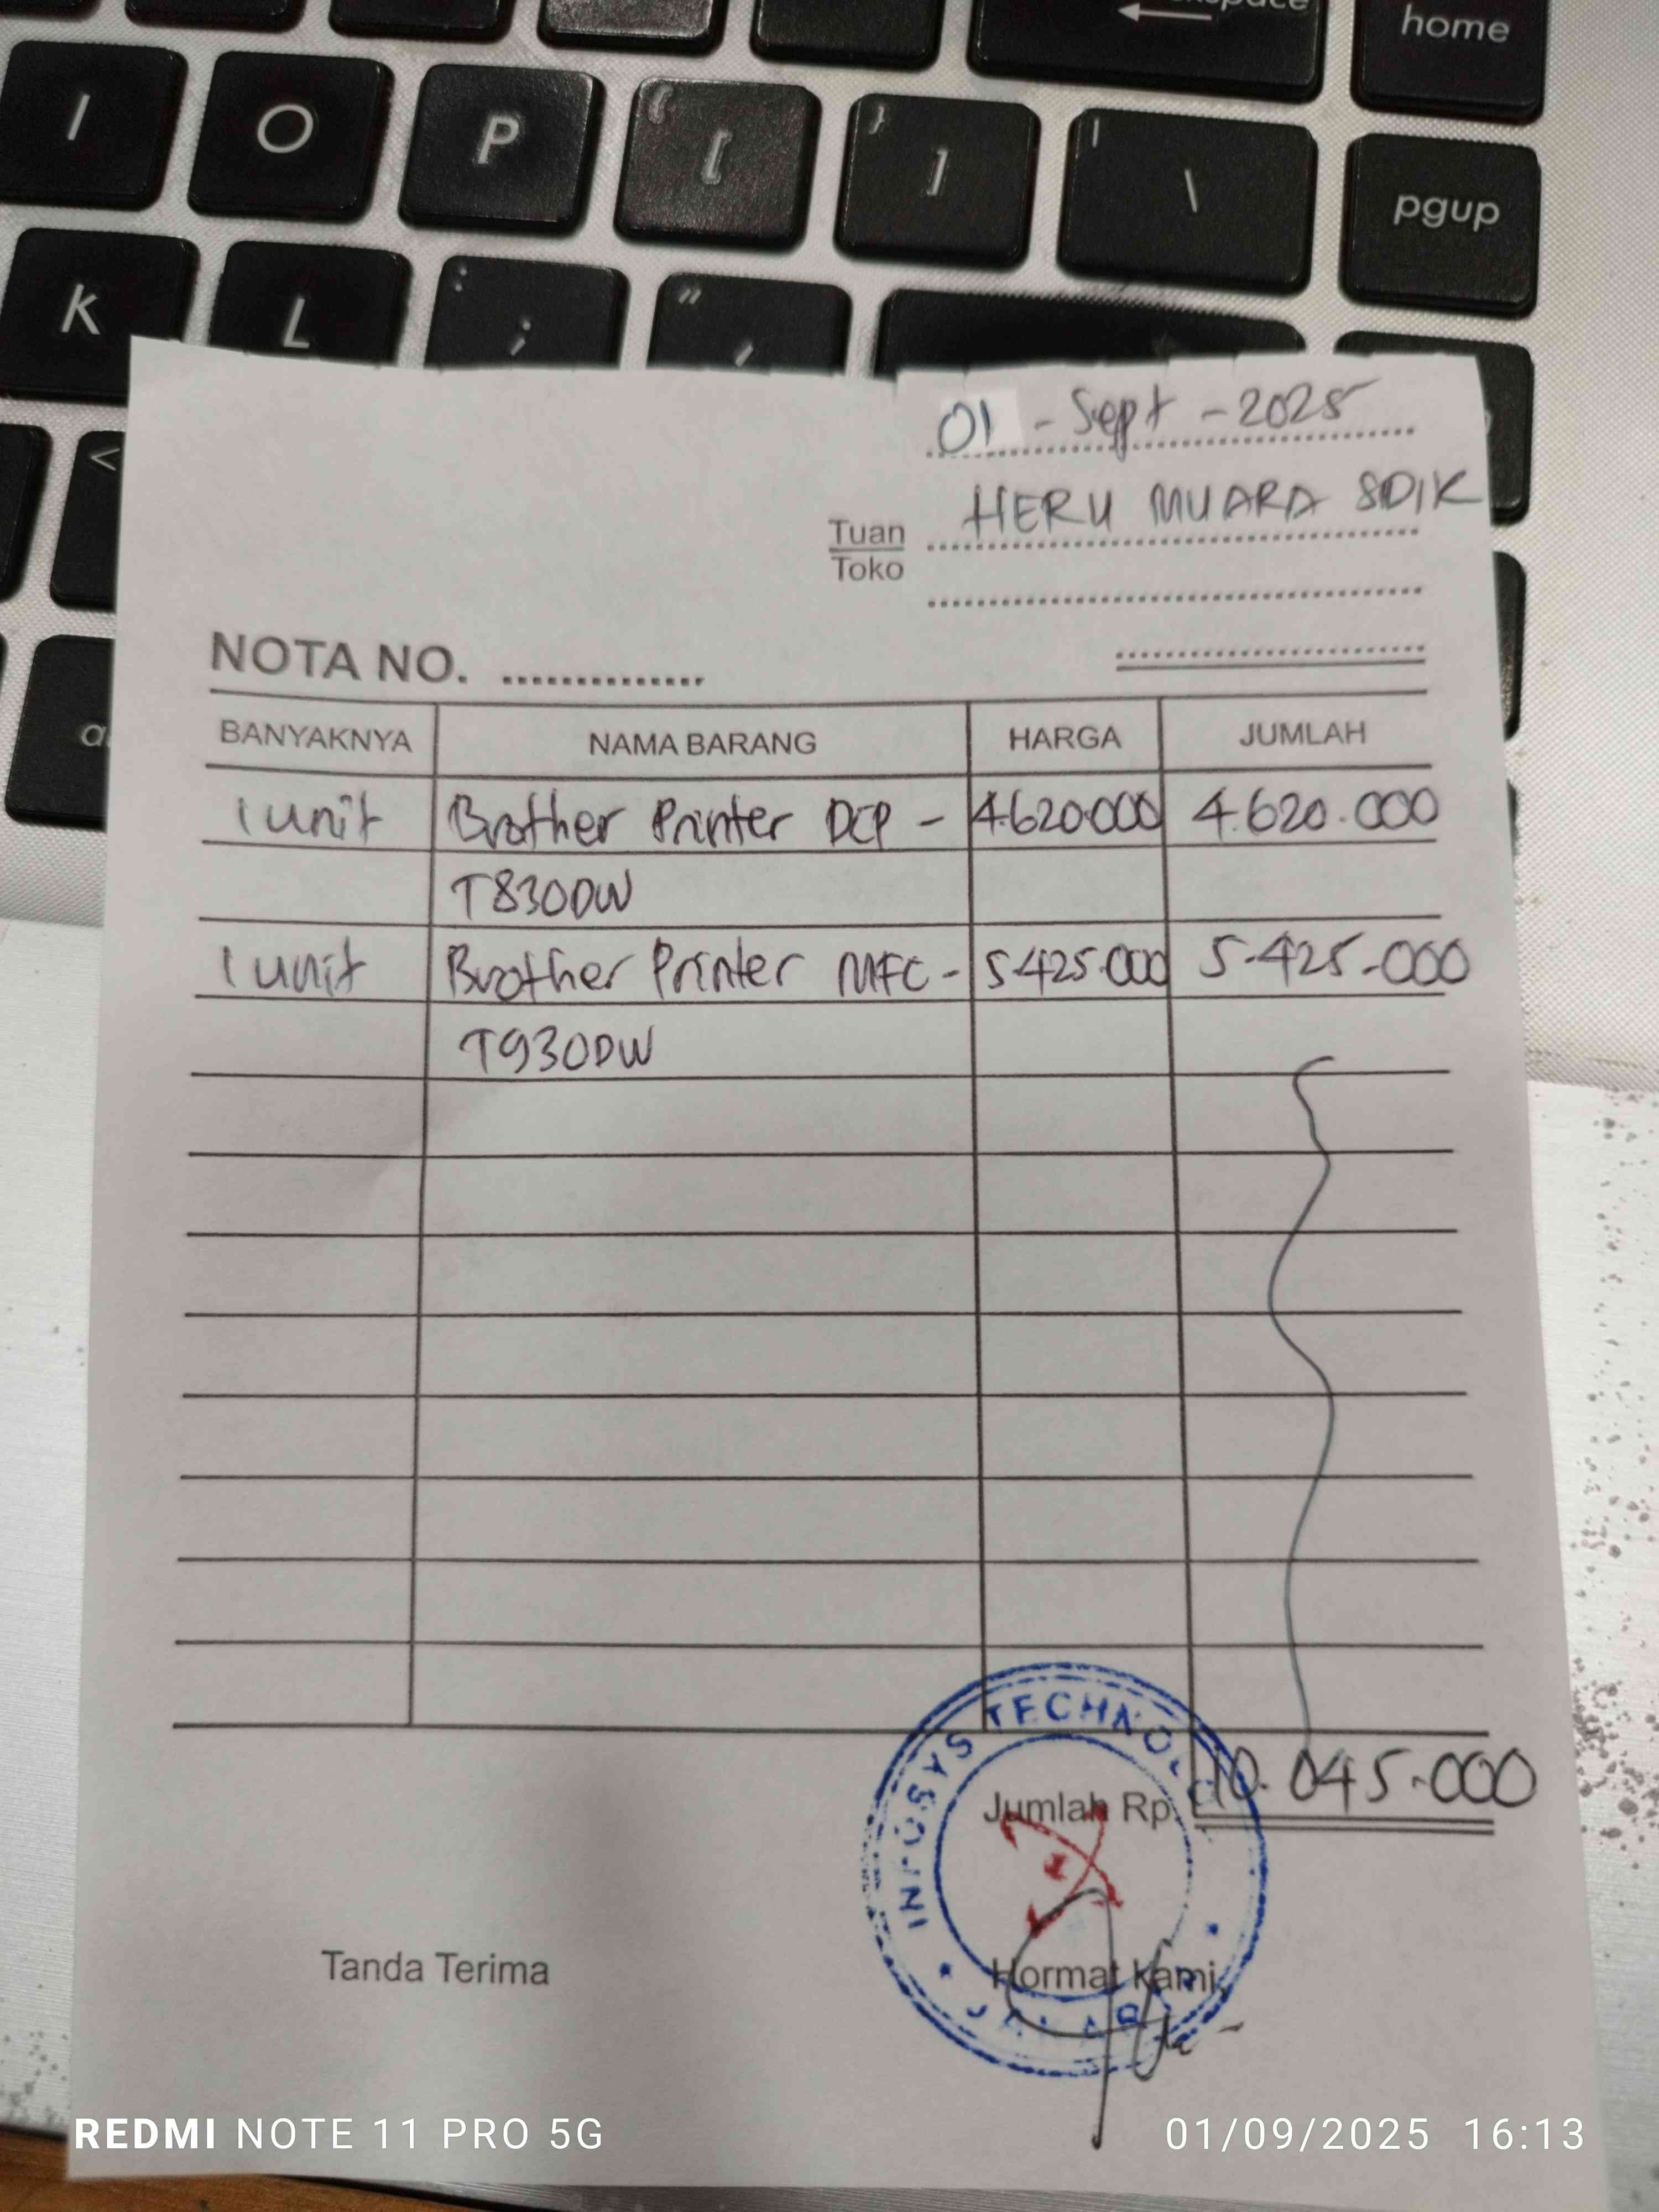 backspace
home
I O P { [ } ] | \ pgup
K L : ; " '
<
01 - Sept - 2025
Tuan HERU MUARA SDIK
Toko
NOTA NO. ..............
BANYAKNYA NAMA BARANG HARGA JUMLAH
1 unit Brother Printer DCP - 4.620.000 4.620.000
T830DW
1 unit Brother Printer MFC - 5.425.000 5.425.000
T930DW
INFOSYS TECHNOLO
Jumlah Rp. 10.045.000
Tanda Terima Hormat Kami,
REDMI NOTE 11 PRO 5G 01/09/2025 16:13